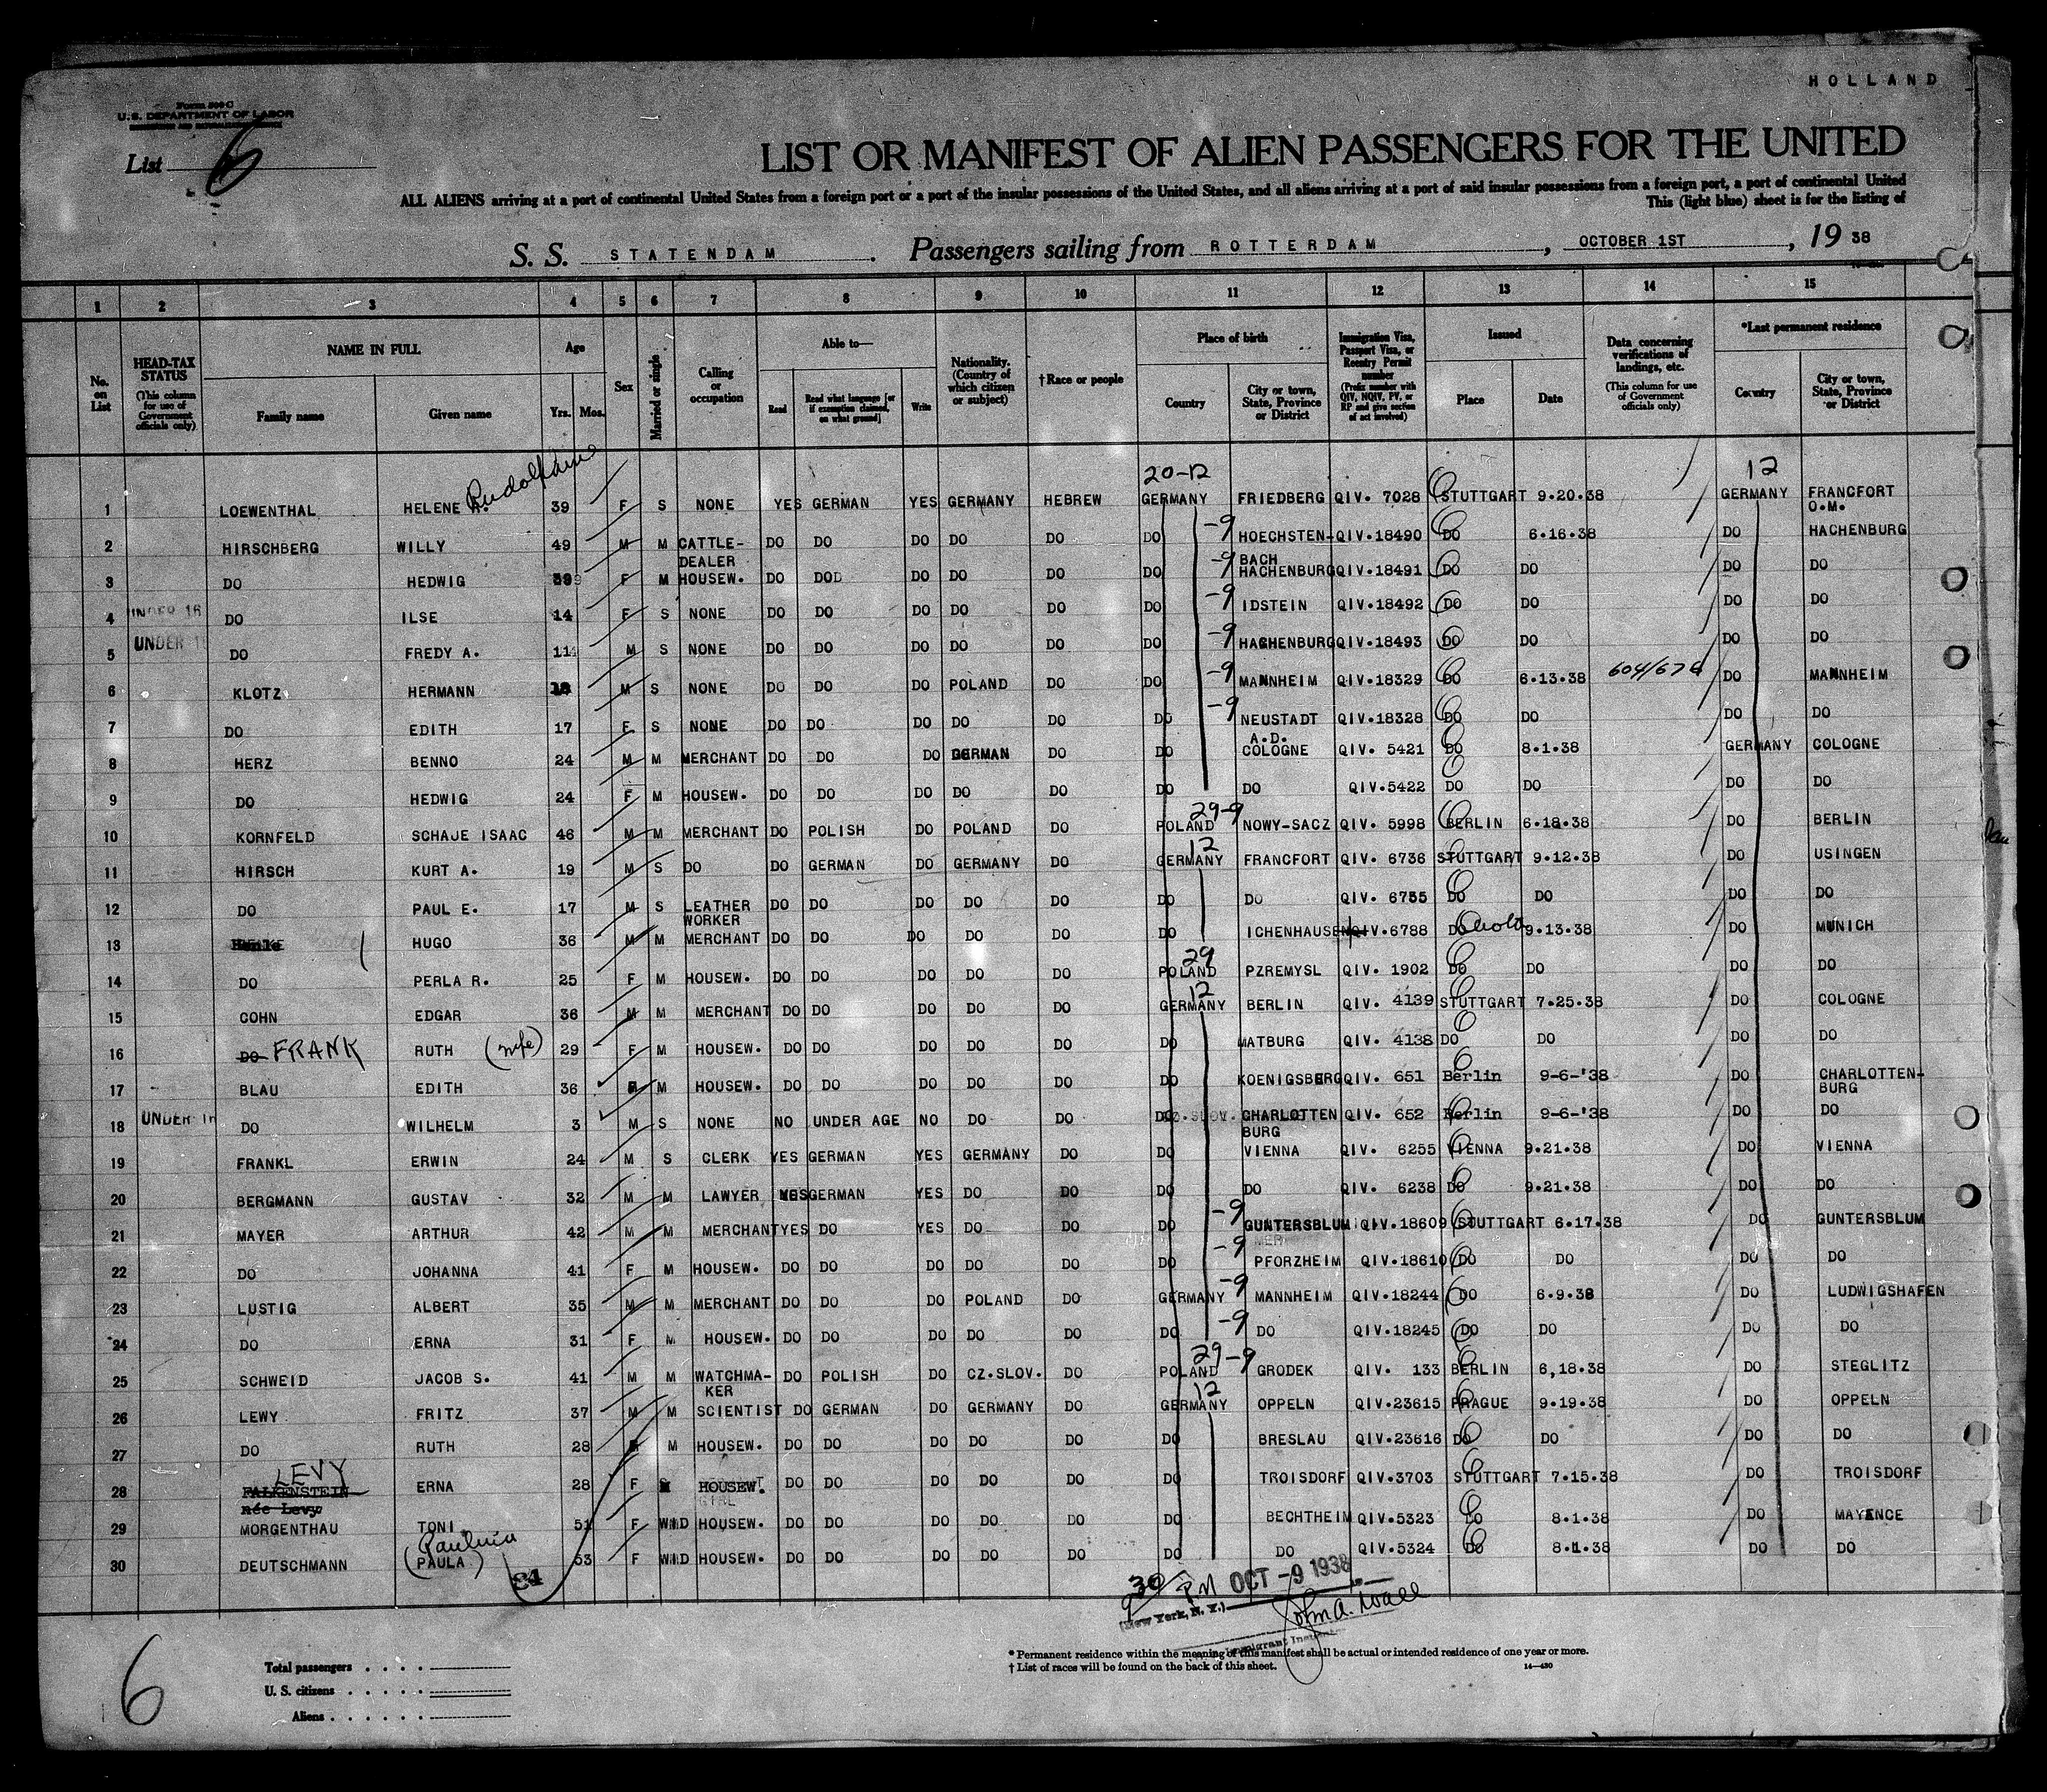 HOLLAND
Form 500-C
U. S. DEPARTMENT OF LABOR
List 6
LIST OR MANIFEST OF ALIEN PASSENGERS FOR THE UNITED
ALL ALIENS arriving at a port of continental United States from a foreign port or a port of the insular possessions of the United States, and all aliens arriving at a port of said insular possessions from a foreign port, a port of continental United
This (light blue) sheet is for the listing of
S. S. STATENDAM. Passengers sailing from ROTTERDAM, OCTOBER 1ST, 19 38
1 2 3 4 5 6 7 8 9 10 11 12 13 14 15
No. on List
HEAD-TAX STATUS (This column for use of Government officials only)
NAME IN FULL
Family name
Given name
Age
Yrs. Mos.
Sex
Married or single
Calling or occupation
Able to—
Read
Read what language [or if exemption claimed, on what ground]
Write
Nationality. (Country of which citizen or subject)
† Race or people
Place of birth
Country
City or town, State, Province or District
Immigration Visa, Passport Visa, or Reentry Permit number (Prefix number with QIV, NQIV, PV, or RP and give section of act involved)
Issued
Place
Date
Data concerning verifications of landings, etc. (This column for use of Government officials only)
*Last permanent residence
Country
City or town, State, Province or District
20-12 12
1 LOEWENTHAL HELENE Rudolfine 39 F S NONE YES GERMAN YES GERMANY HEBREW GERMANY FRIEDBERG QIV. 7028 STUTTGART 9.20.38 GERMANY FRANCFORT O.M.
2 HIRSCHBERG WILLY 49 M M CATTLE-DEALER DO DO DO DO DO DO -9 HOECHSTEN-BACH QIV.18490 DO 6.16.38 DO HACHENBURG
3 DO HEDWIG 39 F M HOUSEW. DO DO DO DO DO DO -9 HACHENBURG QIV.18491 DO DO DO DO
4 UNDER 16 DO ILSE 14 F S NONE DO DO DO DO DO DO -9 IDSTEIN QIV.18492 DO DO DO DO
5 UNDER 16 DO FREDY A. 11 M S NONE DO DO DO DO DO DO -9 HACHENBURG QIV.18493 DO DO DO DO
6 KLOTZ HERMANN M S NONE DO DO DO POLAND DO DO -9 MANNHEIM QIV.18329 DO 6.13.38 604/676 DO MANNHEIM
7 DO EDITH 17 F S NONE DO DO DO DO DO DO -9 NEUSTADT A.D. QIV.18328 DO DO DO DO
8 HERZ BENNO 24 M M MERCHANT DO DO DO GERMAN DO DO COLOGNE QIV. 5421 DO 8.1.38 GERMANY COLOGNE
9 DO HEDWIG 24 F M HOUSEW. DO DO DO DO DO DO DO QIV.5422 DO DO DO DO
10 KORNFELD SCHAJE ISAAC 46 M M MERCHANT DO POLISH DO POLAND DO 29-9 POLAND NOWY-SACZ QIV. 5998 BERLIN 6.18.38 DO BERLIN
11 HIRSCH KURT A. 19 M S DO DO GERMAN DO GERMANY DO 12 GERMANY FRANCFORT QIV. 6736 STUTTGART 9.12.38 DO USINGEN
12 DO PAUL E. 17 M S LEATHER WORKER DO DO DO DO DO DO DO QIV. 6735 DO DO DO DO
13 HUGO 36 M M MERCHANT DO DO DO DO DO DO ICHENHAUSEN QIV.6788 DO 9.13.38 DO MUNICH
14 DO PERLA R. 25 F M HOUSEW. DO DO DO DO DO 29 POLAND PZREMYSL QIV. 1902 DO DO DO DO
15 COHN EDGAR 36 M M MERCHANT DO DO DO DO DO 12 GERMANY BERLIN QIV. 4139 STUTTGART 7.25.38 DO COLOGNE
16 DO FRANK RUTH (wife) 29 F M HOUSEW. DO DO DO DO DO DO MATBURG QIV. 4138 DO DO DO DO
17 BLAU EDITH 36 F M HOUSEW. DO DO DO DO DO DO KOENIGSBERG QIV. 651 Berlin 9-6-'38 DO CHARLOTTEN-BURG
18 UNDER 16 DO WILHELM 3 M S NONE NO UNDER AGE NO DO DO DO CZ.SLOV. CHARLOTTEN BURG QIV. 652 Berlin 9-6-'38 DO DO
19 FRANKL ERWIN 24 M S CLERK YES GERMAN YES GERMANY DO DO VIENNA QIV. 6255 VIENNA 9.21.38 DO VIENNA
20 BERGMANN GUSTAV 32 M M LAWYER YES GERMAN YES DO DO DO DO QIV. 6238 DO 9.21.38 DO DO
21 MAYER ARTHUR 42 M M MERCHANT YES DO YES DO DO DO -9 GUNTERSBLUM QIV.18609 STUTTGART 6.17.38 DO GUNTERSBLUM
22 DO JOHANNA 41 F M HOUSEW. DO DO DO DO DO DO -9 PFORZHEIM QIV.18610 DO DO DO DO
23 LUSTIG ALBERT 35 M M MERCHANT DO DO DO POLAND DO GERMANY -9 MANNHEIM QIV.18244 DO 6.9.38 DO LUDWIGSHAFEN
24 DO ERNA 31 F M HOUSEW. DO DO DO DO DO DO -9 DO QIV.18245 DO DO DO DO
25 SCHWEID JACOB S. 41 M M WATCHMA-KER DO POLISH DO CZ.SLOV. DO 29-9 POLAND GRODEK QIV. 133 BERLIN 6,18.38 DO STEGLITZ
26 LEWY FRITZ 37 M M SCIENTIST DO GERMAN DO GERMANY DO 12 GERMANY OPPELN QIV.23615 PRAGUE 9.19.38 DO OPPELN
27 DO RUTH 28 F M HOUSEW. DO DO DO DO DO DO BRESLAU QIV.23616 DO DO DO DO
28 LEVY FALKENSTEIN née Levy. ERNA 28 F S HOUSEW. DO DO DO DO DO DO TROISDORF QIV.3703 STUTTGART 7.15.38 DO TROISDORF
29 MORGENTHAU TONI 51 F WID HOUSEW. DO DO DO DO DO DO BECHTHEIM QIV.5323 DO 8.1.38 DO MAYENCE
30 DEUTSCHMANN Paulina (PAULA) 53 F WID HOUSEW. DO DO DO DO DO DO DO QIV.5324 DO 8.1.38 DO DO
930 PM OCT -9 1938
(New York, N. Y.)
John A. Wall
Immigrant Inspector
6
Total passengers
U. S. citizens
Aliens
* Permanent residence within the meaning of this manifest shall be actual or intended residence of one year or more.
† List of races will be found on the back of this sheet. 14—430